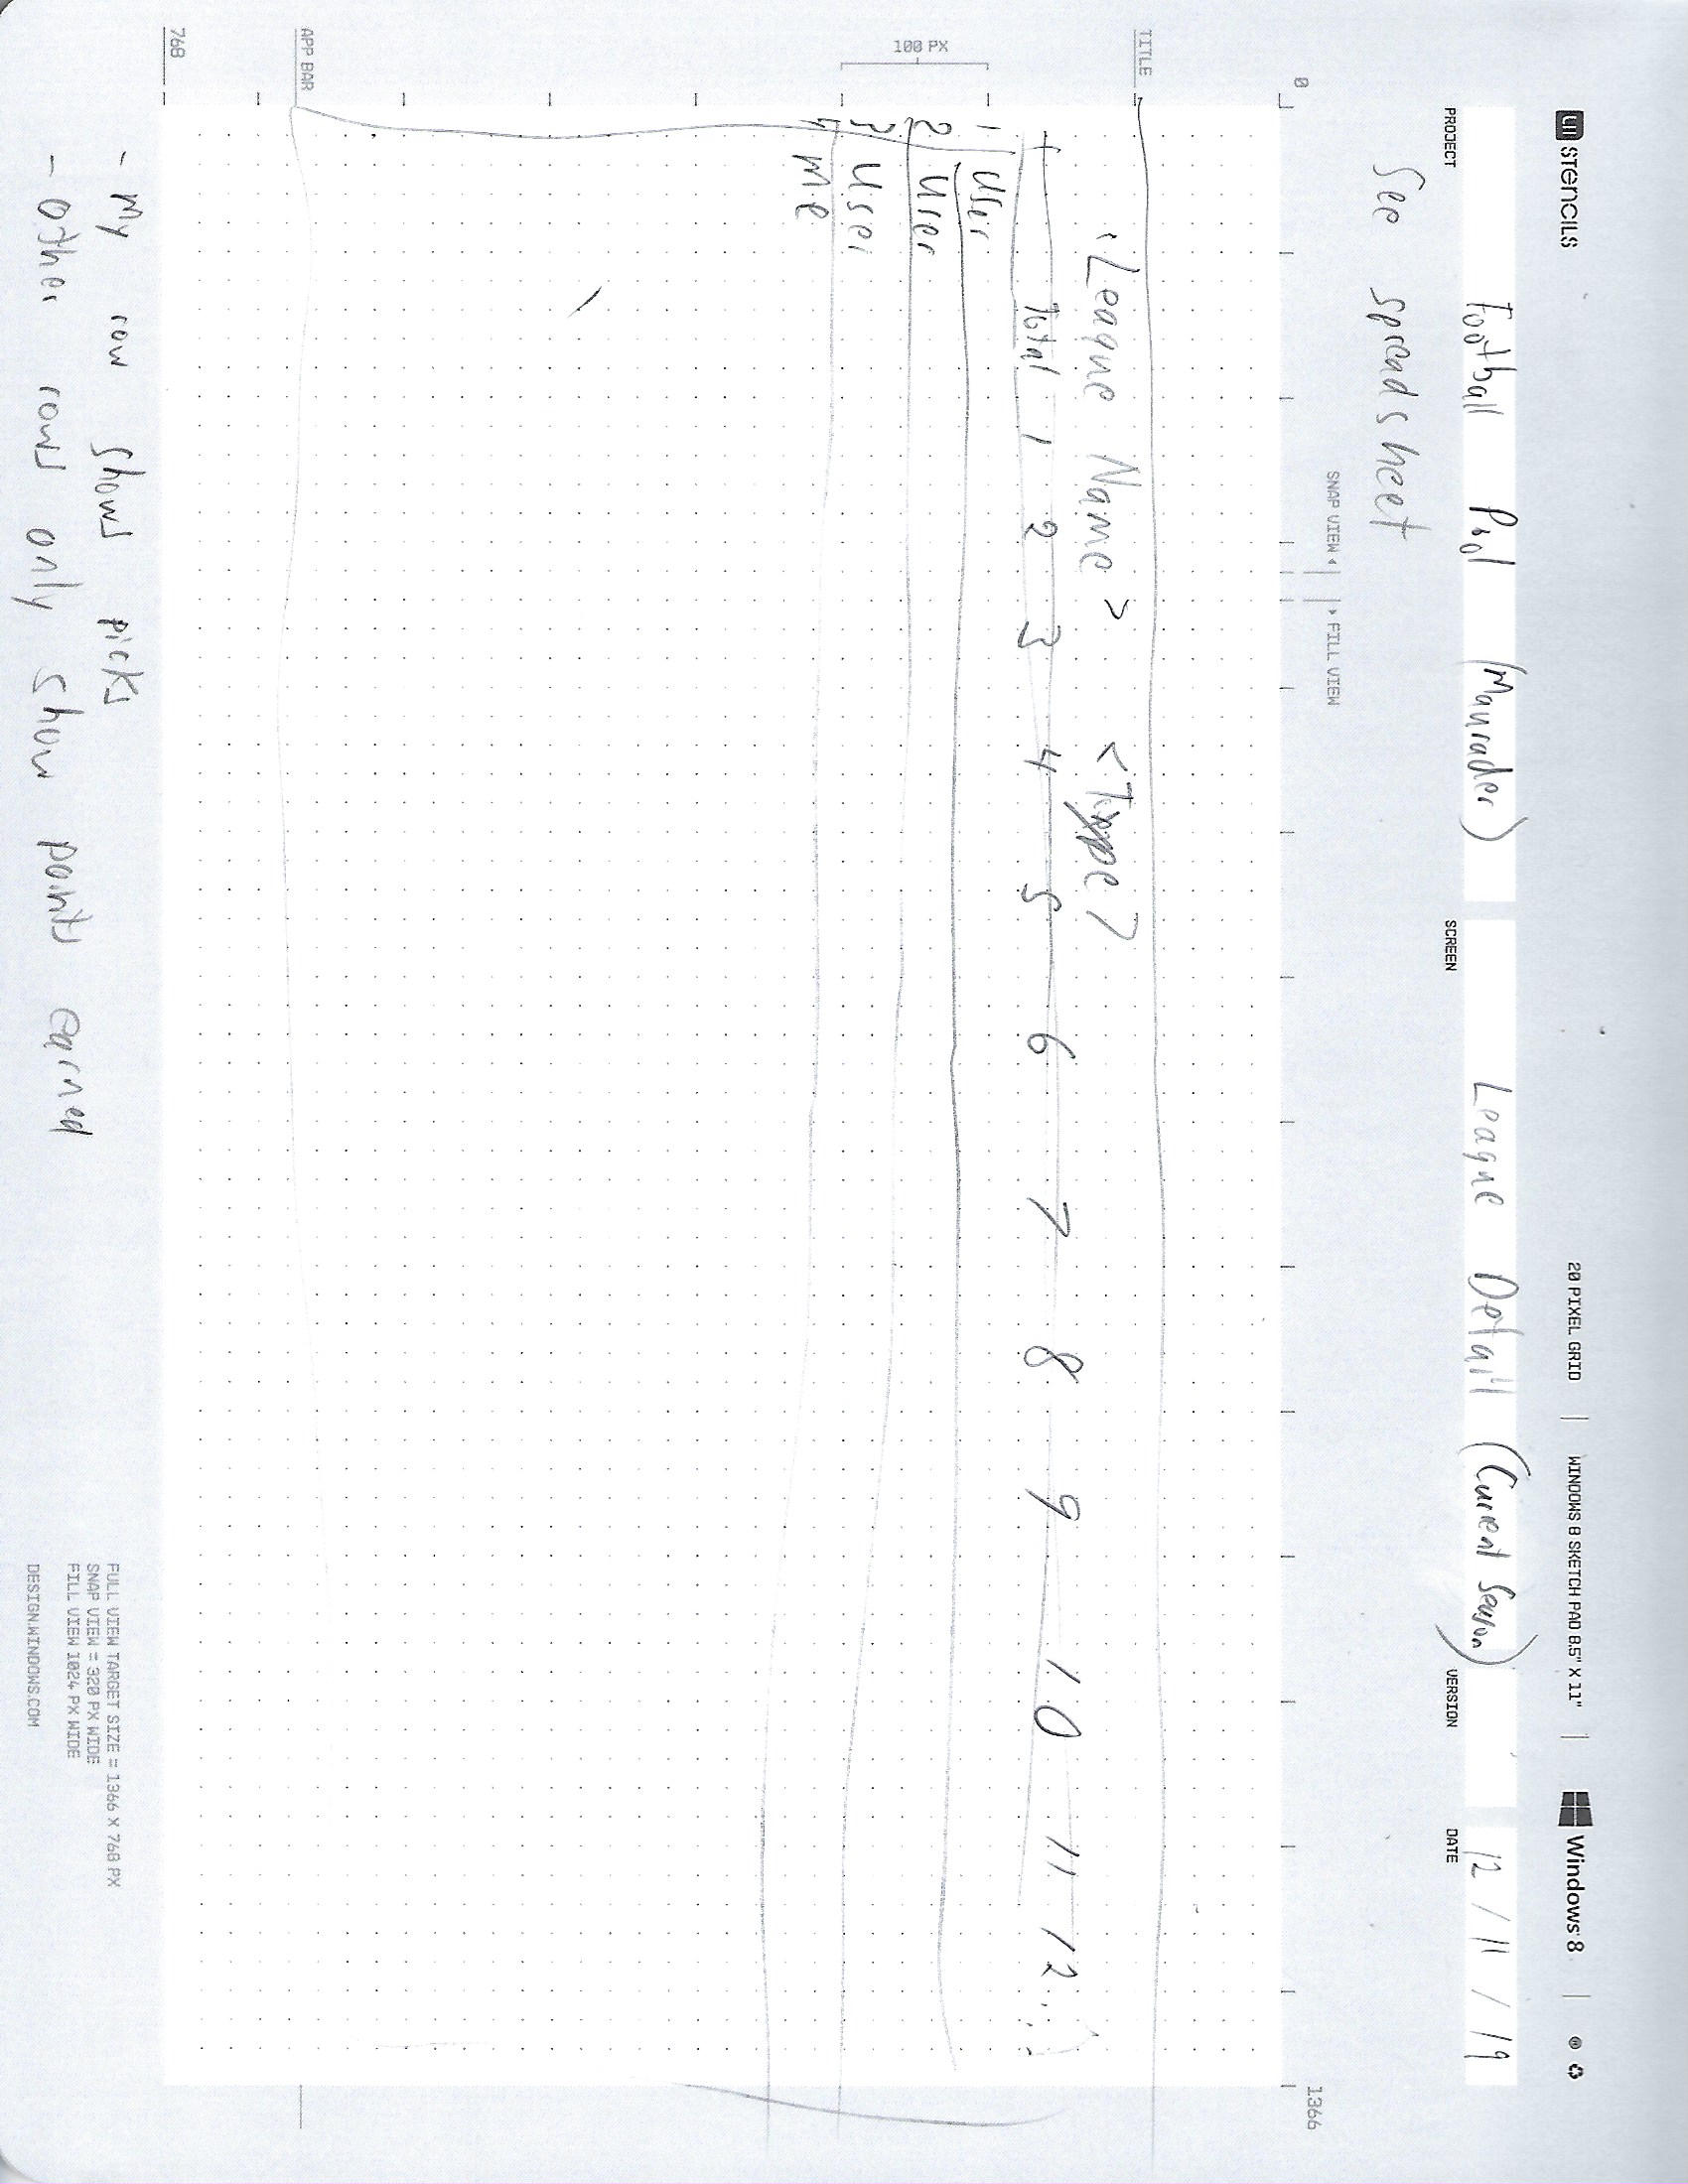 UI STENCILS
20 PIXEL GRID | WINDOWS 8 SKETCH PAD 8.5" X 11" | Windows 8
Football Pool (Maurader) League Detail (Current Season) 12 / 11 / 19
PROJECT SCREEN VERSION DATE
See spreadsheet
SNAP VIEW FILL VIEW
0 1366
TITLE
<League Name> <Type>
Total 1 2 3 4 5 6 7 8 9 10 11 12...
1 User
2 User
100 PX
3 User
4 me
APP BAR
768
- My row shows picks
- Other rows only show points earned
FULL VIEW TARGET SIZE = 1366 X 768 PX
SNAP VIEW = 320 PX WIDE
FILL VIEW 1024 PX WIDE
DESIGN.WINDOWS.COM